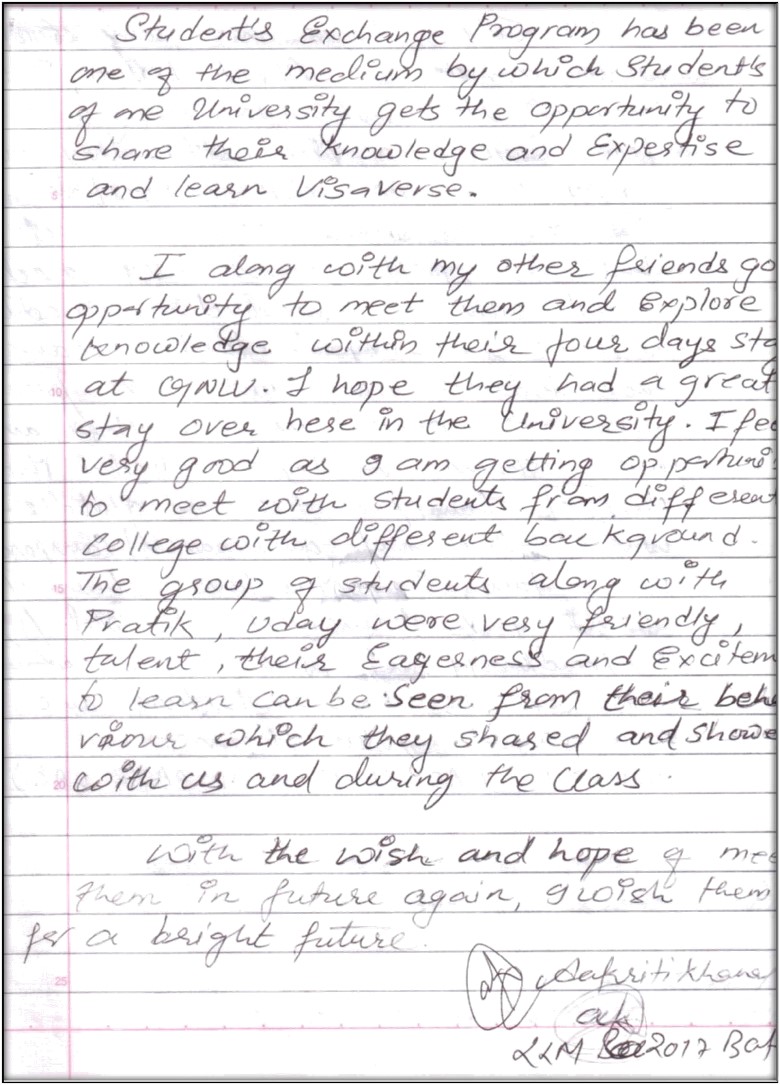 Student's Exchange Program has been
one of the medium by which Student's
of one University gets the opportunity to
share their knowledge and Expertise
and learn Visaverse.
I along with my other friends go
opportunity to meet them and Explore
knowledge within their four days sta
at GNLU. I hope they had a great
stay over here in the University. I fee
very good as I am getting opportuni
to meet with students from differen
College with different background.
The group of students along with
Pratik, Uday were very friendly,
talent, their Eagerness and Excitem
to learn can be seen from their beha
viour which they shared and showe
with us and during the Class.
With the wish and hope of mee
them in future again, I wish them
for a bright future.
Aakriti Khana
LLM 2017 Bat
5
10
15
20
25